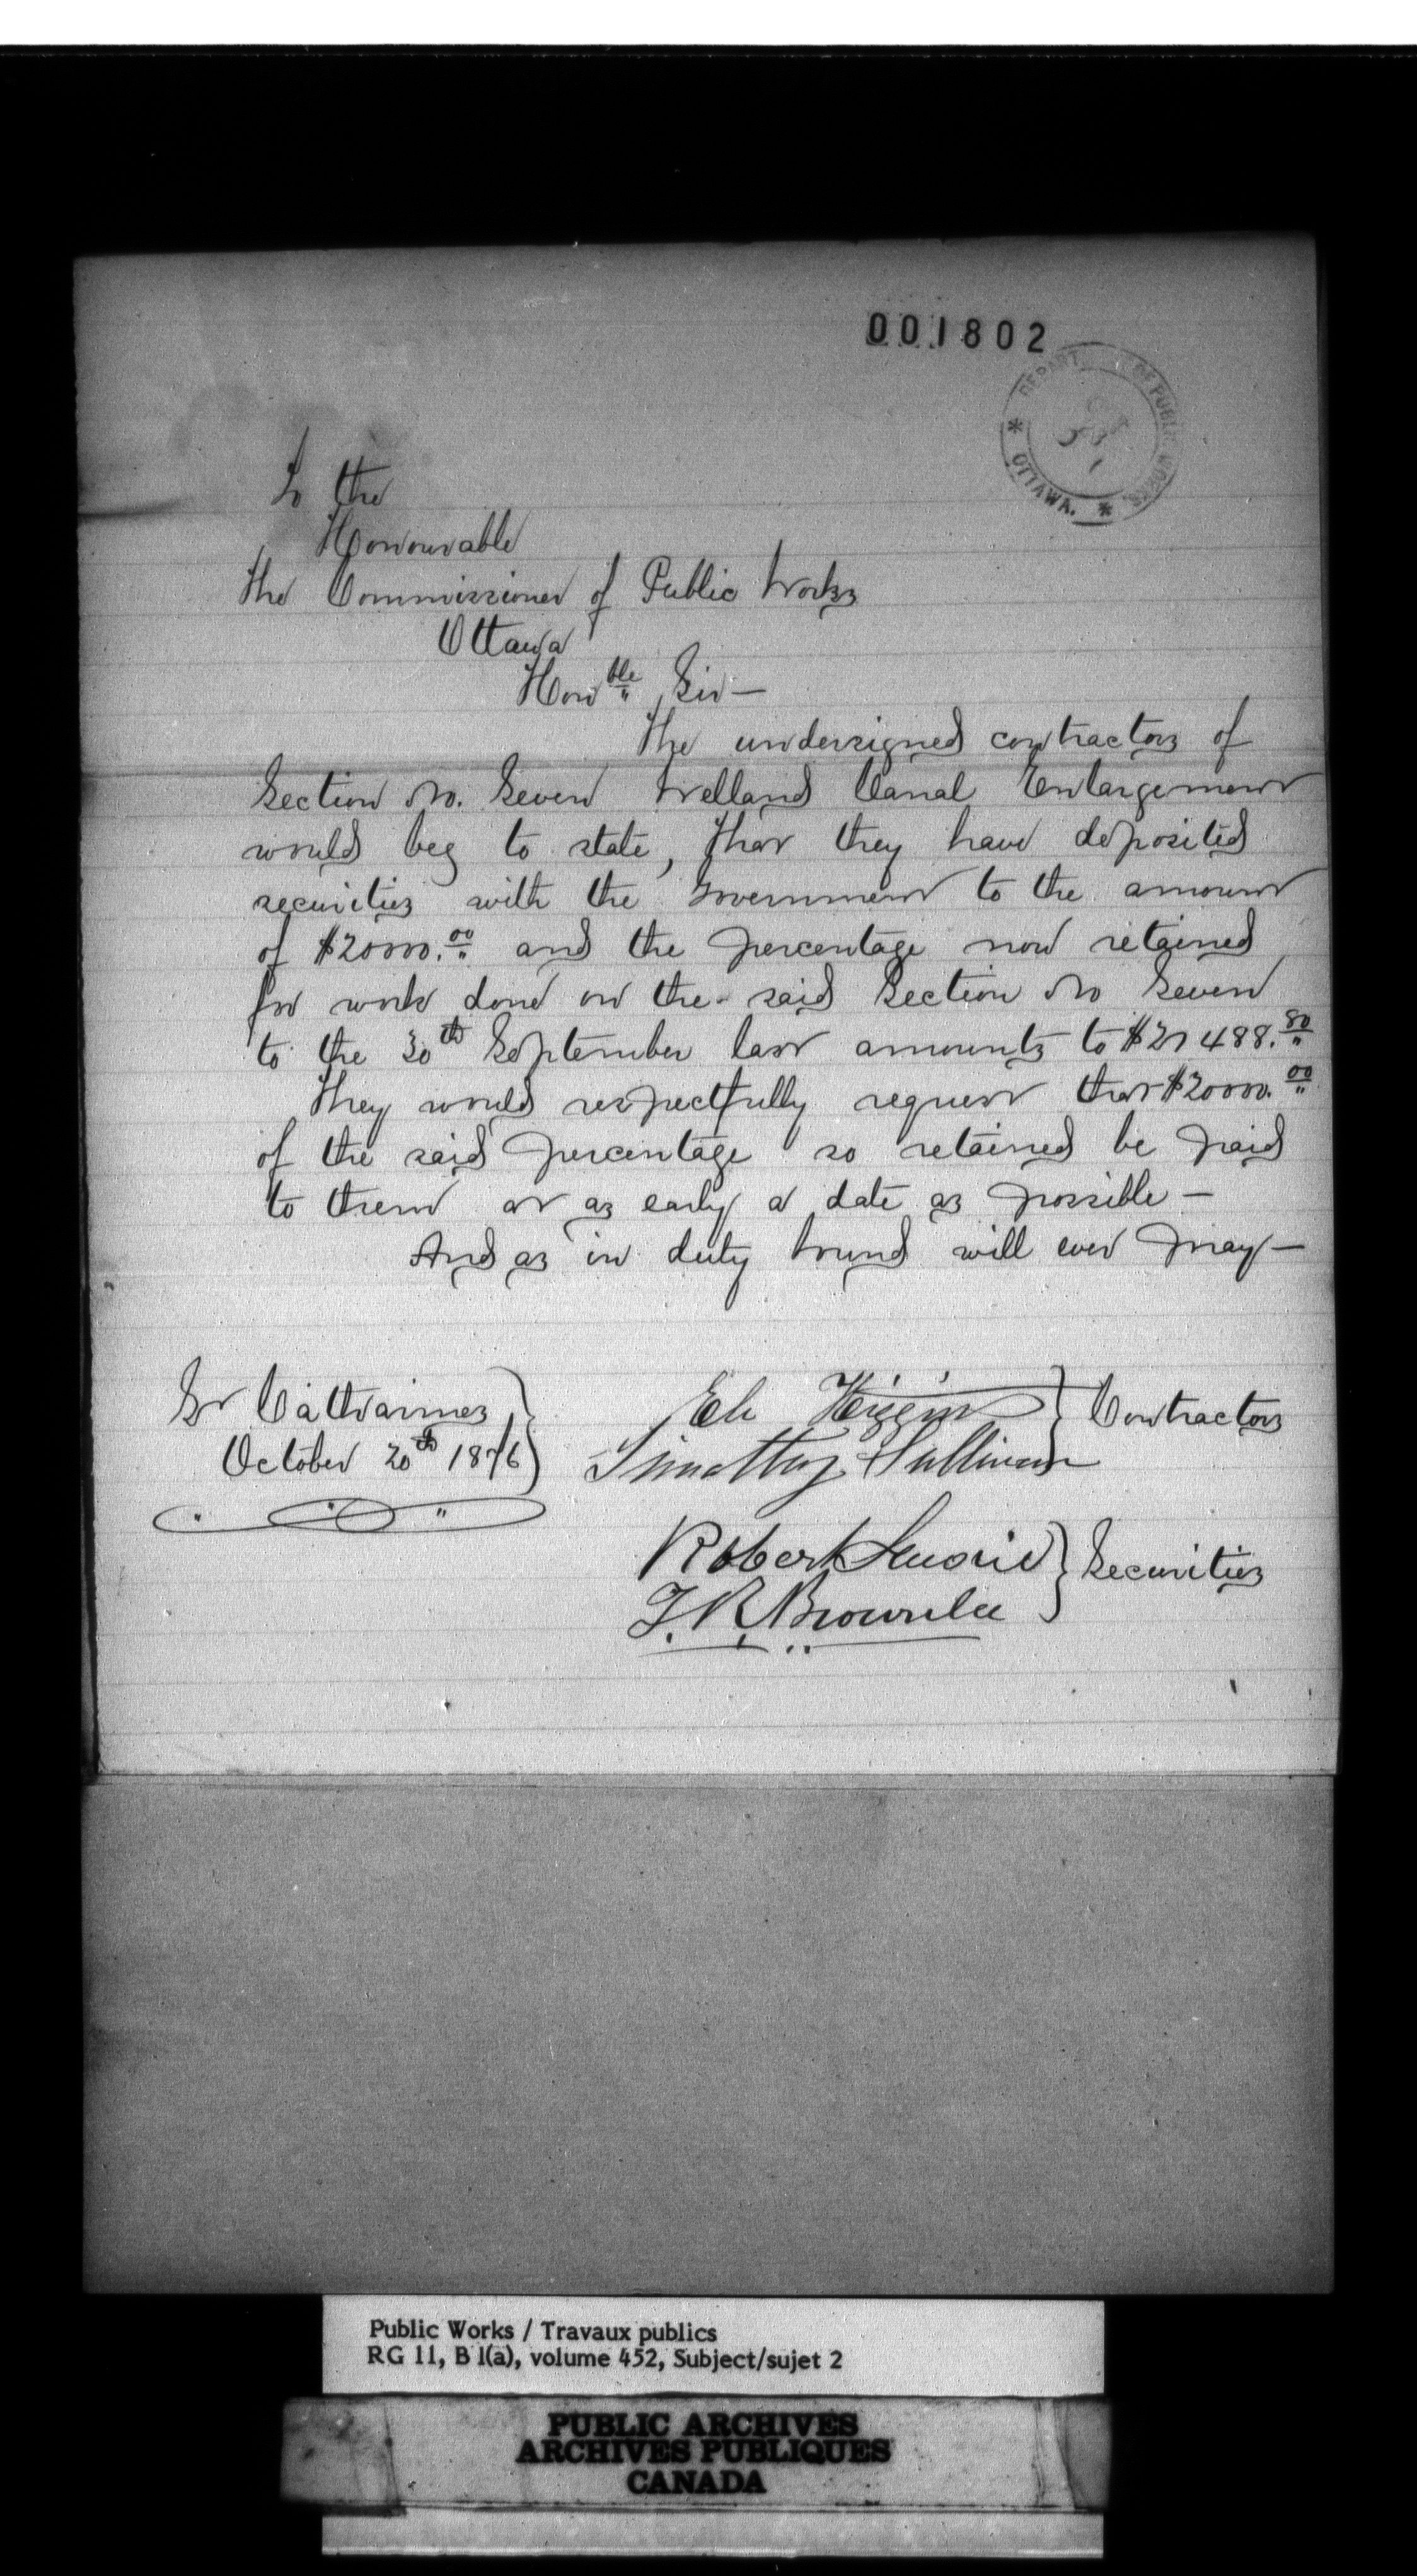 001802
DEPART. OF PUBLIC WORKS
OTTAWA.
To the
Honourable
The Commissioner of Public Works
Ottawa
Honble Sir—
The undersigned contractors of
Section No. Seven Welland Canal Enlargement
would beg to state, that they have deposited
securities with the Government to the amount
of $20000.00 and the percentage now retained
for work done on the said Section No Seven
to the 30th September last amounts to $27488.80
They would respectfully request that $20000.00
of the said percentage so retained be paid
to them at as early a date as possible—
And as in duty bound will ever pray—
St Catharines
October 20th 1876
Eli Higgins
Timothy Sullivan
Contractors
Robert
T. R. Brownlee
Securities
Public Works / Travaux publics
RG 11, B 1(a), volume 452, Subject/sujet 2
PUBLIC ARCHIVES
ARCHIVES PUBLIQUES
CANADA